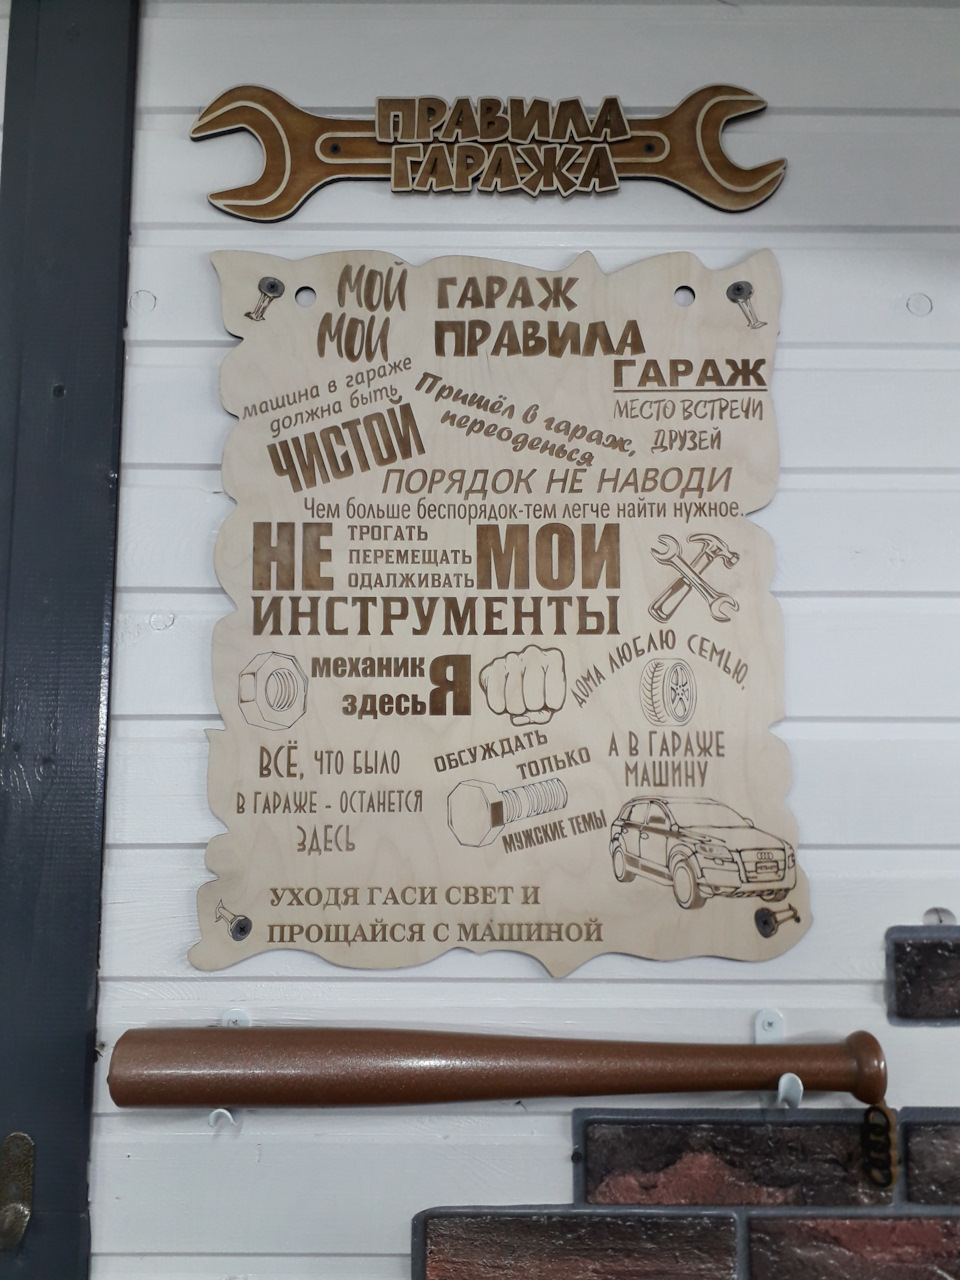 ПРАВИЛА
ГАРАЖА
МОЙ ГАРАЖ
МОИ ПРАВИЛА
машина в гараже
должна быть
ЧИСТОЙ
Пришёл в гараж,
переоденься
ГАРАЖ
МЕСТО ВСТРЕЧИ
ДРУЗЕЙ
ПОРЯДОК НЕ НАВОДИ
Чем больше беспорядок-тем легче найти нужное.
НЕ ТРОГАТЬ
ПЕРЕМЕЩАТЬ
ОДАЛЖИВАТЬ МОИ
ИНСТРУМЕНТЫ
механик
здесь Я
ДОМА ЛЮБЛЮ СЕМЬЮ,
А В ГАРАЖЕ
МАШИНУ
ВСЁ, ЧТО БЫЛО
В ГАРАЖЕ - ОСТАНЕТСЯ
ЗДЕСЬ
ОБСУЖДАТЬ
ТОЛЬКО
МУЖСКИЕ ТЕМЫ
УХОДЯ ГАСИ СВЕТ И
ПРОЩАЙСЯ С МАШИНОЙ